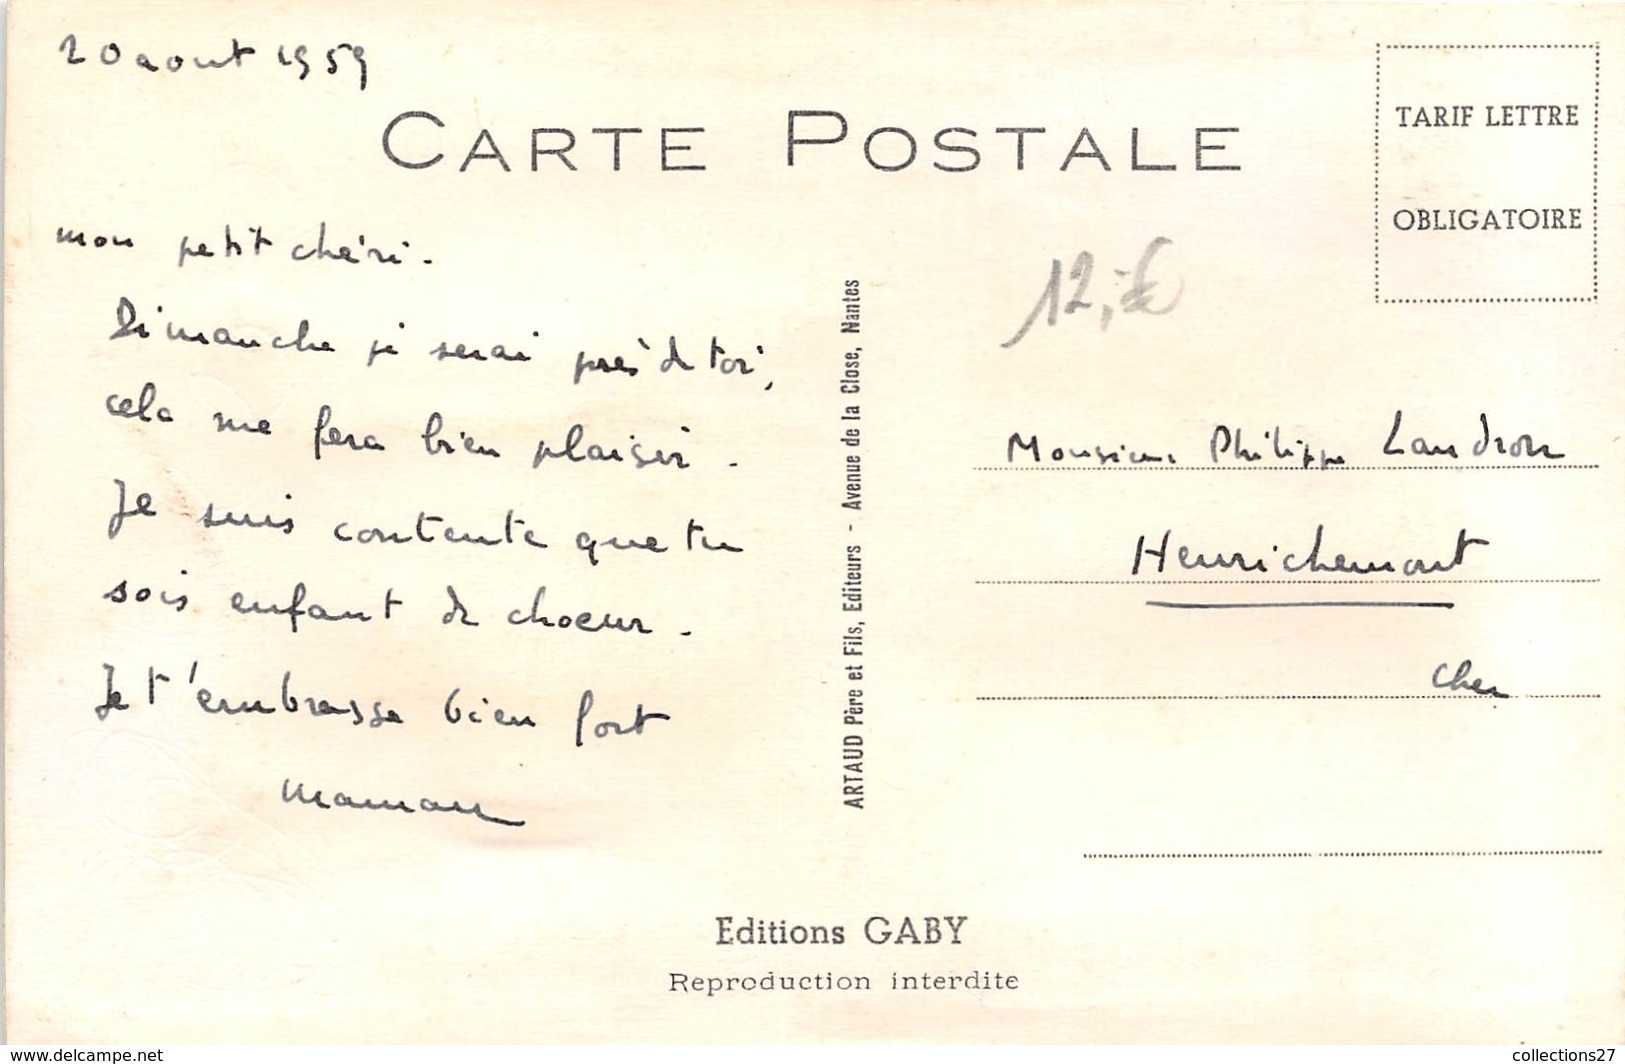 20 aout 1959
CARTE POSTALE
TARIF LETTRE
OBLIGATOIRE
mon petit chéri.
Dimanche je serai près de toi,
cela me fera bien plaisir.
Je suis contente que tu
sois enfant de choeur.
Je t'embrasse bien fort
maman
ARTAUD Père et Fils, Editeurs - Avenue de la Close, Nantes
12,-€
Monsieur Philippe Landron
Henrichemont
Cher
Editions GABY
Reproduction interdite
www.delcampe.net
collections27